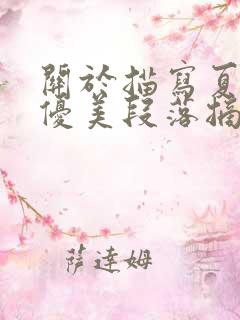 關於描寫夏
優美段落摘
薩達姆